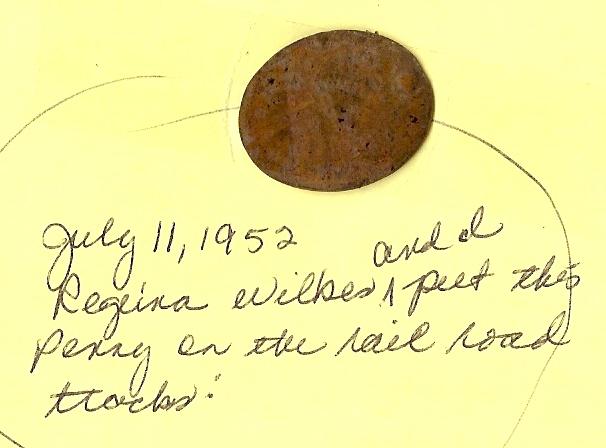 July 11, 1952
and I
Regina Wilkes ^ put this
penny on the rail road
tracks.